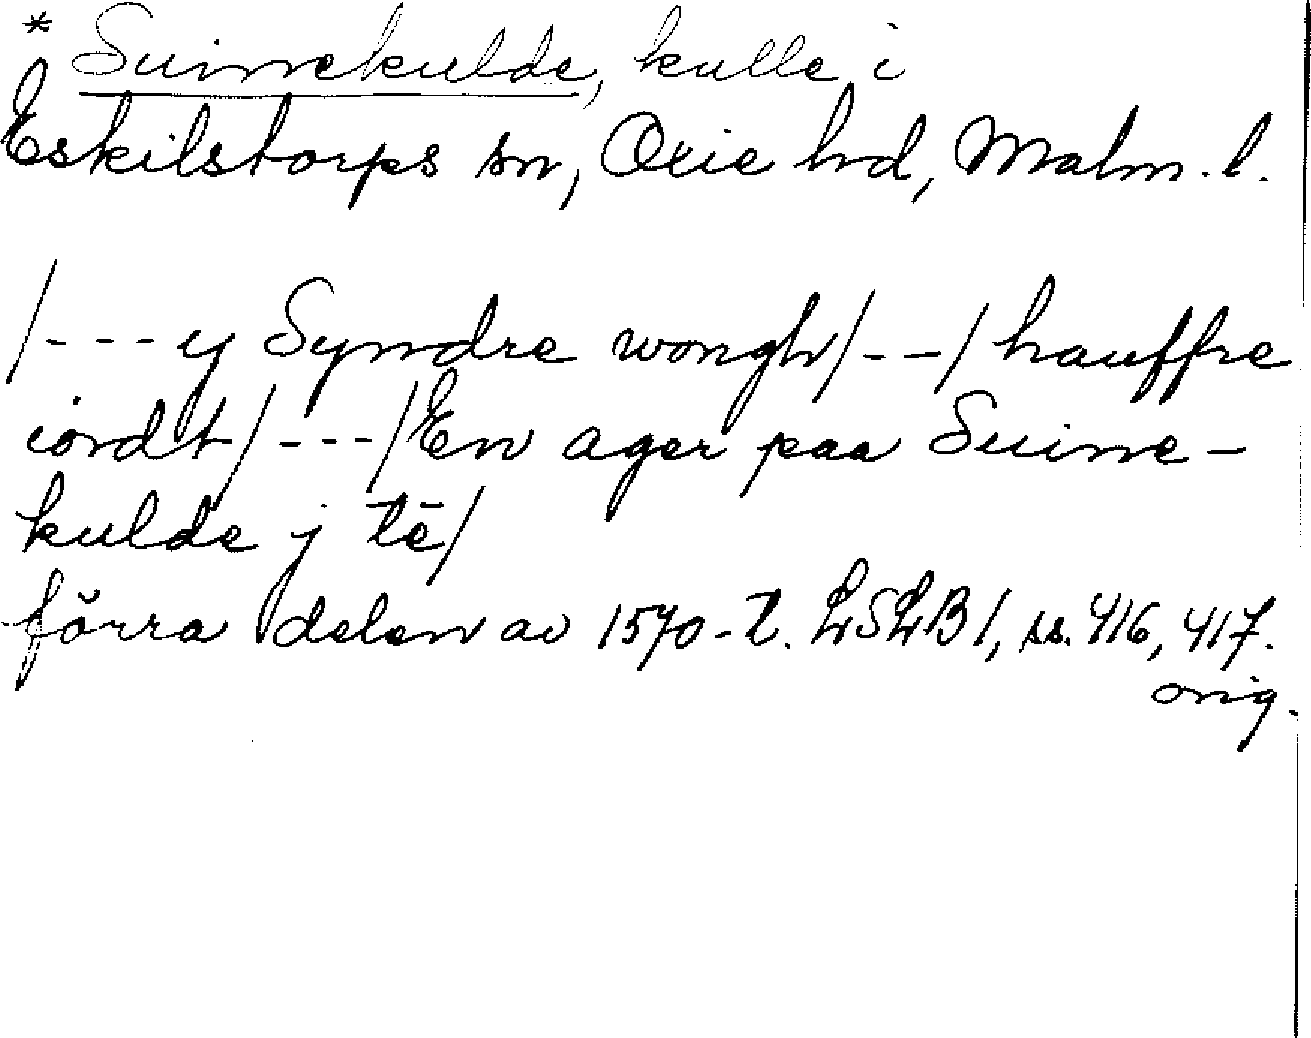 * Suinekulde, kulle i
Eskilstorps sn, Oxie hd, Malm. l.
/--- y Syndre wongh/--/ hauffre
iordt/---/ En ager paa Suine-
kulde j tē/
förra delen av 1570-t. LSLB 1, ss. 416, 417.
orig.